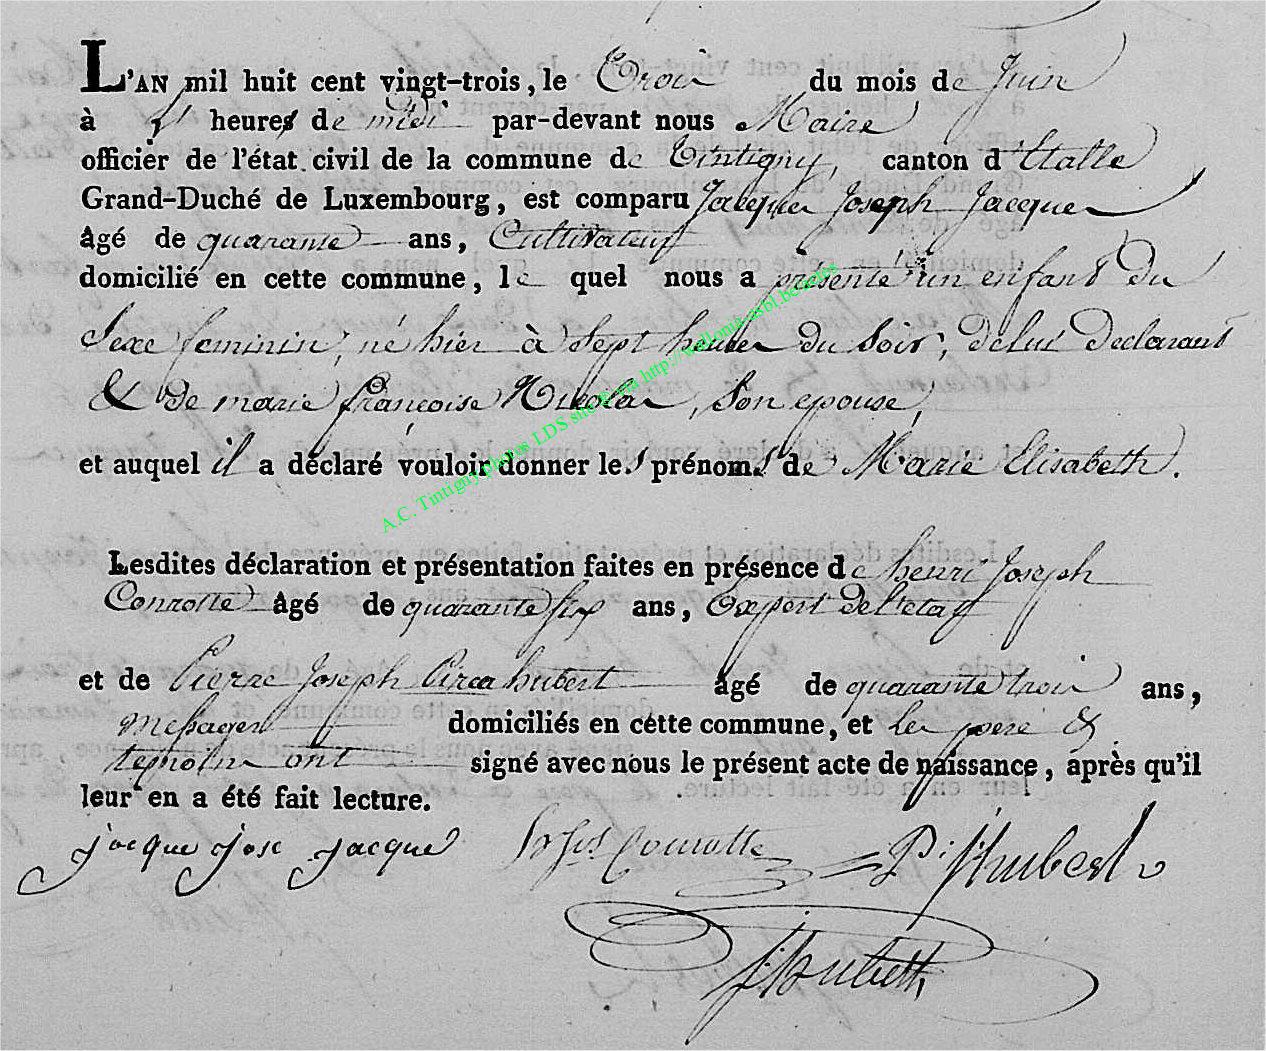 L'AN mil huit cent vingt-trois, le Trois du mois de Juin
à heures de midi par-devant nous Maire
officier de l'état civil de la commune de Tintigny, canton d'Etalle
Grand-Duché de Luxembourg, est comparu Jacques Joseph Jacques
âgé de quarante ans, Cultivateur
domicilié en cette commune, le quel nous a présenté un enfant du
Sexe feminin, né hier à Sept heures du Soir, de lui Declarant
& de marie françoise Nicolas, Son epouse,
et auquel il a déclaré vouloir donner les prénoms de Marie Elisabeth.
Lesdites déclaration et présentation faites en présence de henri Joseph
Conrotte âgé de quarante six ans, Expert De l'etat
et de Pierre Joseph hubert âgé de quarante trois ans,
messager domiciliés en cette commune, et Les pere &
temoins ont signé avec nous le présent acte de naissance, après qu'il
leur en a été fait lecture.
jacque jose jacque Conrotte P. j hubert
A.C. Tintigny photos LDS site via http://wallonia-asbl.be